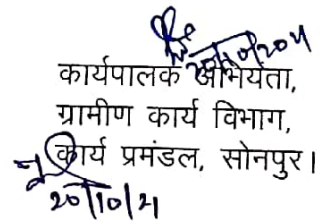 20/10/2021
कार्यपालक अभियंता,
ग्रामीण कार्य विभाग,
कार्य प्रमंडल, सोनपुर।
20/10/21